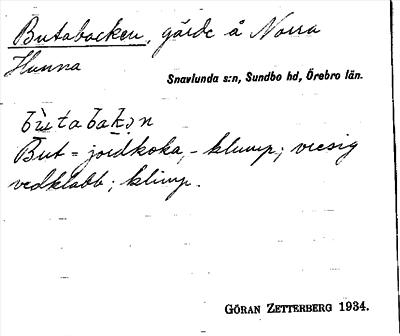 Butabacken, gärde å Norra
Hunna
Snavlunda s:n, Sundbo hd, Örebro län.
bùtabakən
But = jordkoka, - klump; vresig
vedklabb; klimp.
GÖRAN ZETTERBERG 1934.